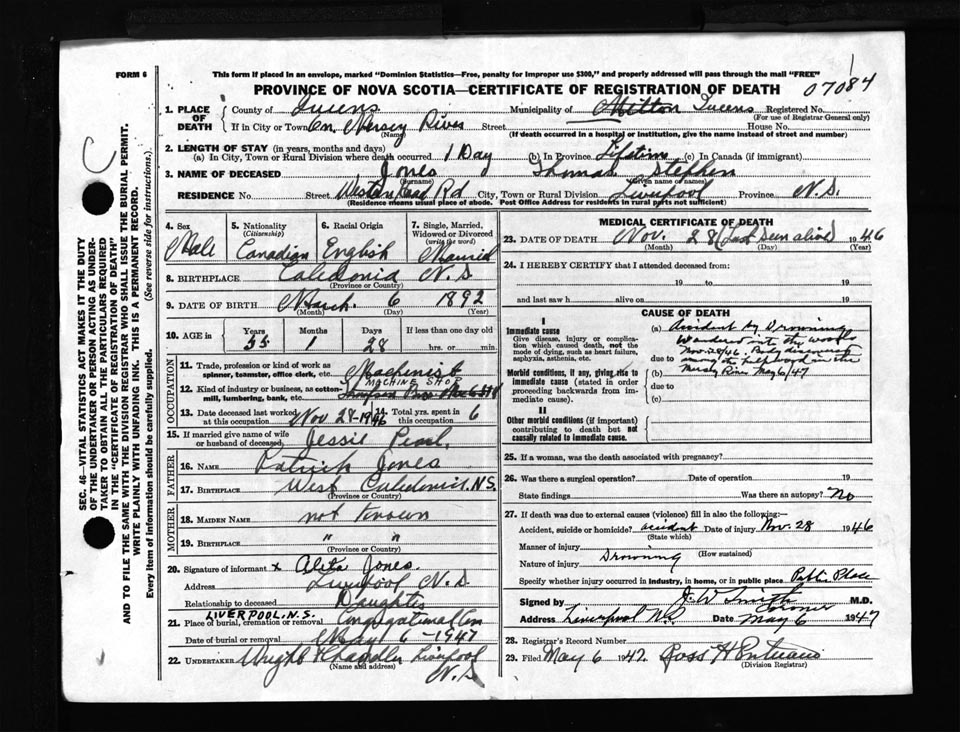 FORM 6
This form if placed in an envelope, marked "Dominion Statistics—Free, penalty for improper use $300," and properly addressed will pass through the mail "FREE"
PROVINCE OF NOVA SCOTIA—CERTIFICATE OF REGISTRATION OF DEATH
07084
C
SEC. 46—VITAL STATISTICS ACT MAKES IT THE DUTY
OF THE UNDERTAKER OR PERSON ACTING AS UNDER-
TAKER TO OBTAIN ALL THE PARTICULARS REQUIRED
IN THE "CERTIFICATE OF REGISTRATION OF DEATH"
AND TO FILE THE SAME WITH THE DIVISION REGISTRAR WHO SHALL ISSUE THE BURIAL PERMIT.
WRITE PLAINLY WITH UNFADING INK. THIS IS A PERMANENT RECORD.
Every item of information should be carefully supplied. (See reverse side for instructions.)
1. PLACE OF DEATH County of Queens Municipality of Milton Queens Registered No.
(For use of Registrar General only)
If in City or Town On Mersey River Street House No.
(Name) (If death occurred in a hospital or institution, give the name instead of street and number)
2. LENGTH OF STAY (in years, months and days)
(a) In City, Town or Rural Division where death occurred 1 Day (b) In Province Lifetime (c) In Canada (if immigrant)
3. NAME OF DECEASED Jones Thomas Stephen
(Surname) (Given name or names)
RESIDENCE No. Street Western Head Rd City, Town or Rural Division Liverpool Province N.S.
(Residence means usual place of abode. Post Office Address for residents in rural parts not sufficient)
4. Sex 5. Nationality (Citizenship) 6. Racial Origin 7. Single, Married, Widowed or Divorced (write the word)
Male Canadian English Married
8. BIRTHPLACE Caledonia N.S
(Province or Country)
9. DATE OF BIRTH March 6 1892
(Month) (Day) (Year)
10. AGE in Years Months Days If less than one day old
55 1 28 hrs. or min.
OCCUPATION
11. Trade, profession or kind of work as spinner, teamster, office clerk, etc. Machinist
12. Kind of industry or business, as cotton-mill, lumbering, bank, etc. MACHINE SHOP
Thompson Bros
13. Date deceased last worked at this occupation Nov 28-1946 14. Total yrs. spent in 6
15. If married give name of wife or husband of deceased Jessie Pearl
FATHER
16. NAME Patrick Jones
17. BIRTHPLACE West Caledonia, N.S.
(Province or Country)
MOTHER
18. MAIDEN NAME not known
19. BIRTHPLACE " "
(Province or Country)
20. Signature of informant x Aleta Jones
Address Liverpool N.S.
Relationship to deceased Daughter
21. Place of burial, cremation or removal LIVERPOOL, N.S. Congregational Cem
Date of burial or removal May 6-1947
22. UNDERTAKER Wright Chandler Liverpool
(Name and address) N.S
MEDICAL CERTIFICATE OF DEATH
23. DATE OF DEATH Nov. 28 (Last seen alive) 1946
(Month) (Day) (Year)
24. I HEREBY CERTIFY that I attended deceased from:
19 to 19
and last saw h alive on 19
CAUSE OF DEATH
I
Immediate cause
Give disease, injury or complication which caused death, not the mode of dying, such as heart failure, asphyxia, asthenia, etc.
Morbid conditions, if any, giving rise to immediate cause (stated in order proceeding backwards from immediate cause).
II
Other morbid conditions (if important) contributing to death but not causally related to immediate cause.
(a) Accident by Drowning
Wandered into the woods
due to Nov. 28/46. Body discovered
among the pulpwood in the
(b) Mersey River May 6/47
due to
(c)
25. If a woman, was the death associated with pregnancy?
26. Was there a surgical operation? Date of operation 19
State findings Was there an autopsy? No
27. If death was due to external causes (violence) fill in also the following:—
Accident, suicide or homicide? accident Date of injury Nov. 28 1946
(State which)
Manner of injury
(How sustained)
Nature of injury Drowning
Specify whether injury occurred in industry, in home, or in public place Public Place
Signed by J. W Smith M.D.
Coroner
Address Liverpool N.S. Date May 6 1947
28. Registrar's Record Number
29. Filed May 6 1947. Ross H
(Division Registrar)